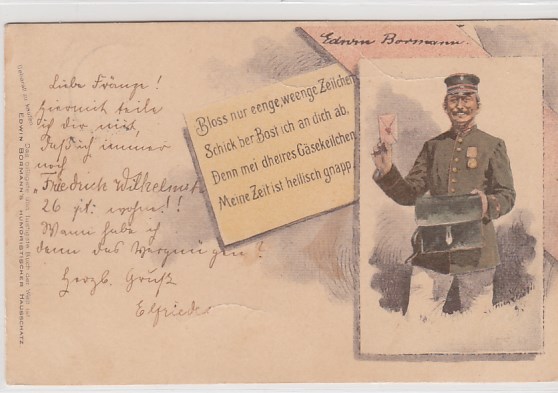 Edwin Bormann.
Bloss nur eenge, weenge Zeilchen
Schick ber Bost ich an dich ab,
Denn mei dheires Gäsekeilchen,
Meine Zeit ist hellisch gnapp.
Liebe Fränze!
Hiermit teile
ich dir mit,
daß ich immer
noch
"Friedrich Wilhelmstr
26 ptr. wohne!!
Wann habe ich
denn das Vergnügen!
Herzl. Gruß
Elfriede
EDWIN BORMANN'S HUMORISTISCHER HAUSSCHATZ